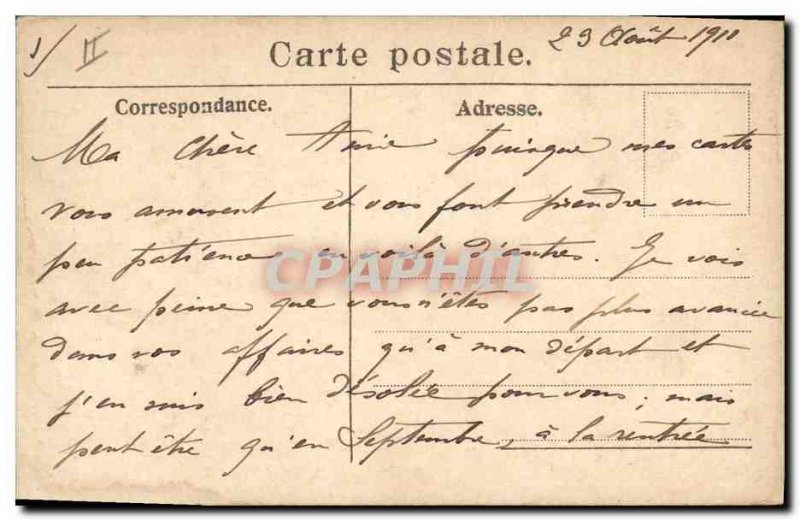 1/ II
23 Août 1911
Carte postale.
Correspondance.
Adresse.
Ma Chère Amie puisque mes cartes
vous amusent et vous font prendre un
peu patience en voilà d'autres. Je vois
avec peine que vous n'êtes pas plus avancée
dans vos affaires qu'à mon départ et
j'en suis bien désolée pour vous ; mais
peut être qu'en Septembre, à la rentrée
CPAPHIL